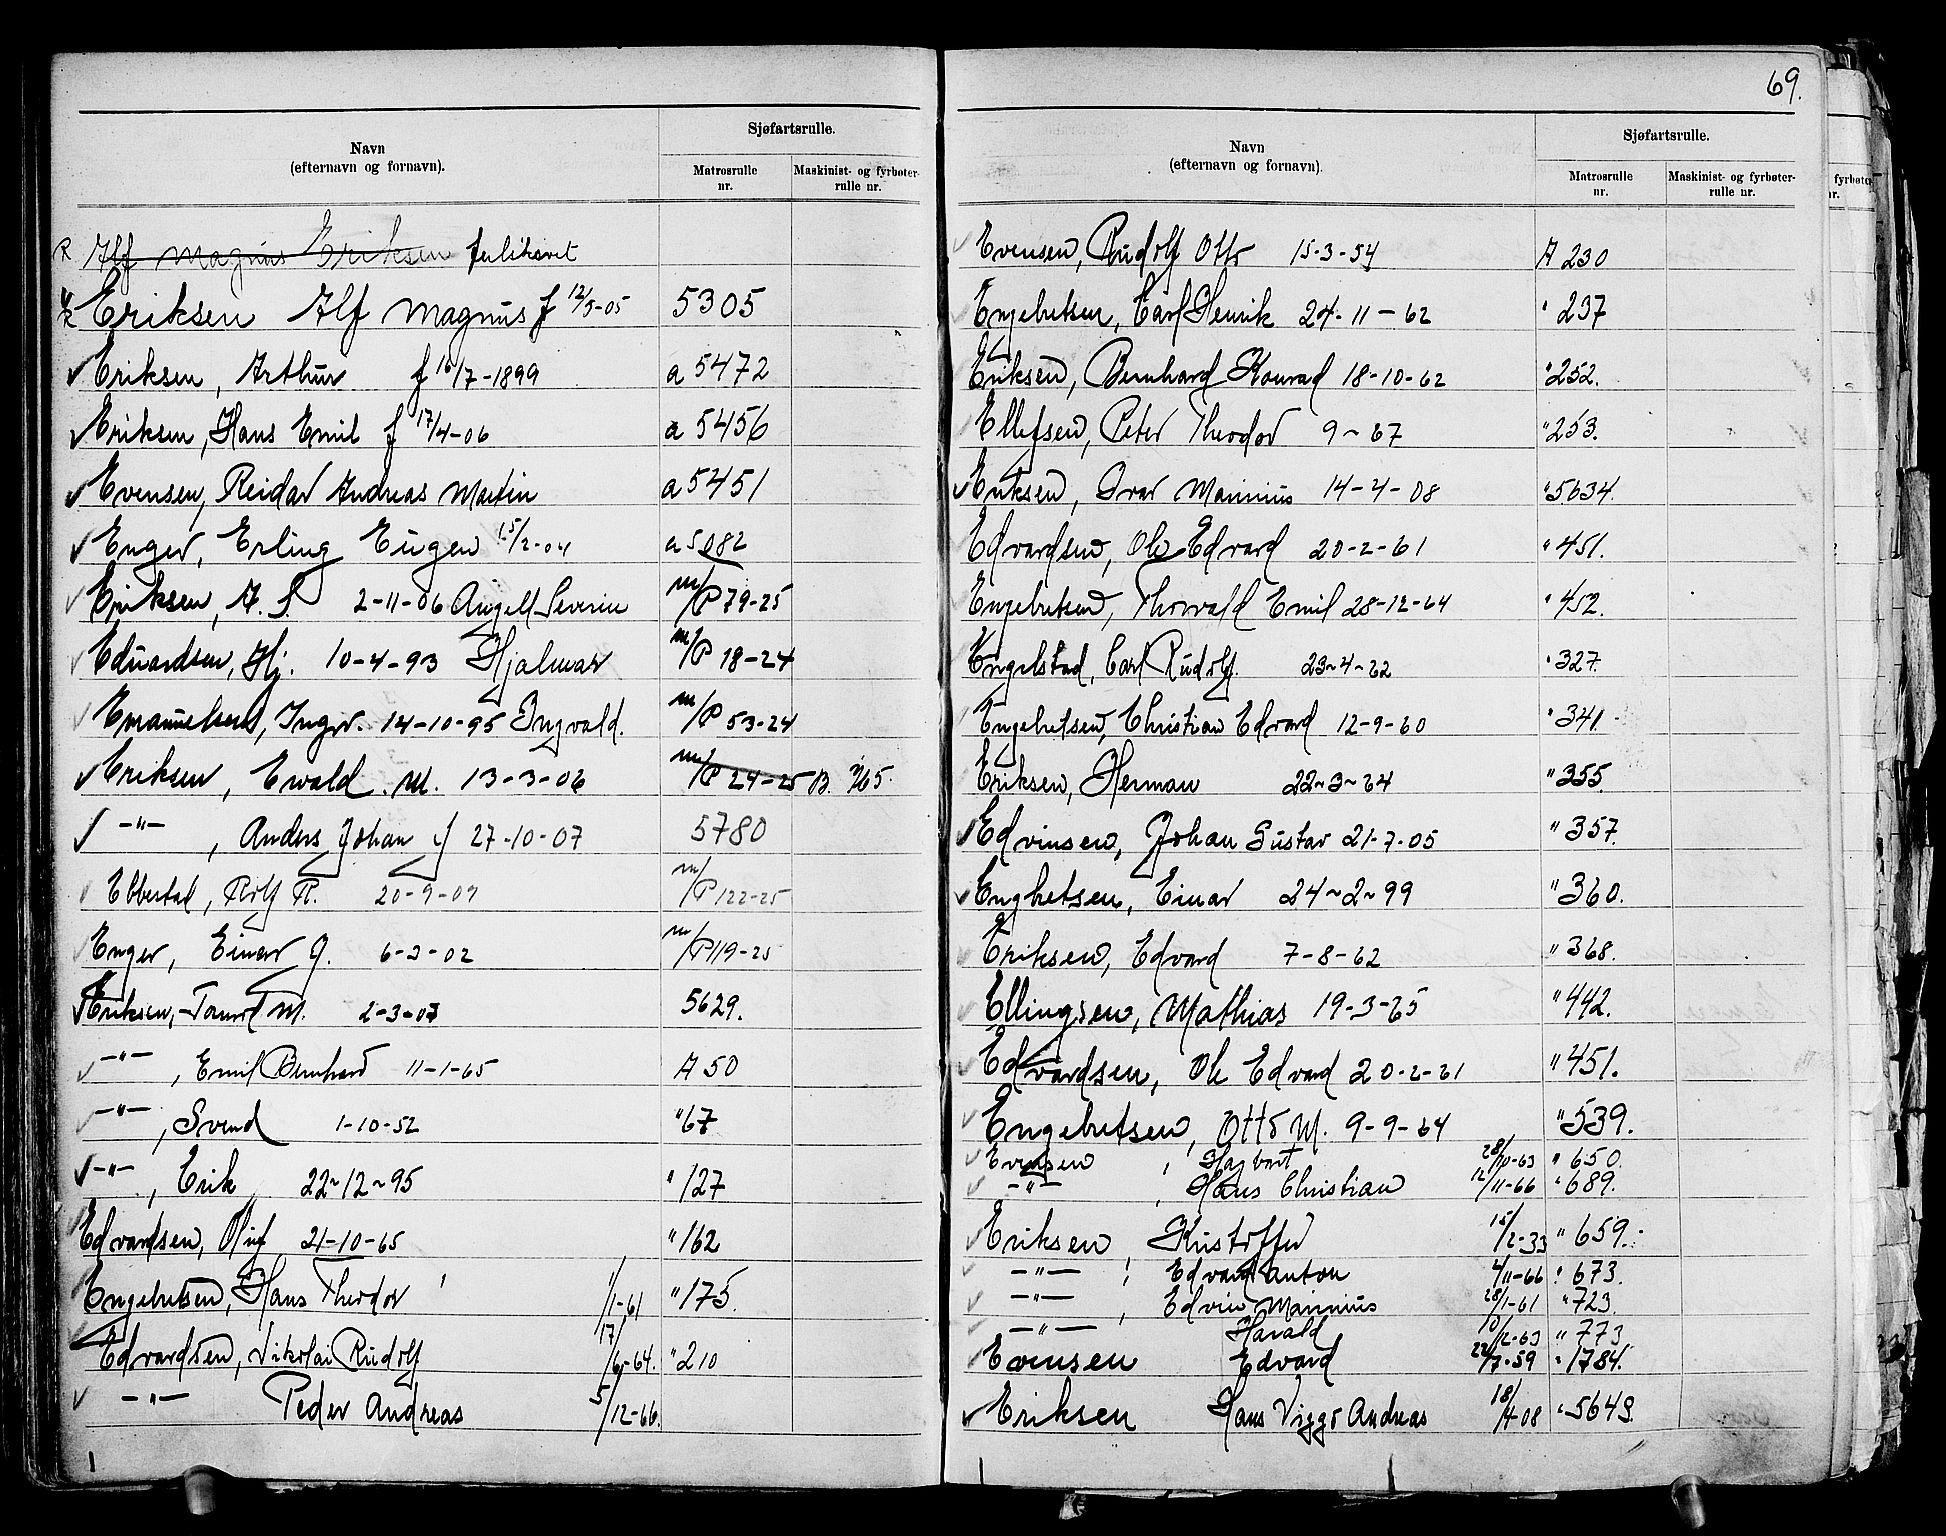 Navn
(efternavn og fornavn).
Sjøfartsrulle.
Matrosrulle
nr.
Maskinist- og fyrbøter-
rulle nr.
R Alf Magnus Eriksen feilskrevet
Eriksen Alf Magnus f 12/3-05 5305
Eriksen, Arthur f 16/7-1899 a 5472
Eriksen, Hans Emil f 17/4-06 a 5456
Evensen, Reidar Andreas Martin a 5451
Enger, Erling Eugen 15/2-04 a 5082
Eriksen, A. S. 2-11-06 Angell Severin m/P 79-25
Edvardsen, Hj. 10-4-93 Hjalmar m/P 18-24
Emanuelsen, Ingv. 14-10-95 Ingvald. m/P 53-24
Eriksen, Ewald. M. 13-3-06 m/P 24-25 B.
-"-, Anders Johan f 27-10-07 5780
Ebbestad, Rolf R. 20-9-07 m/P 122-25
Enger, Einar J. 6-3-02 m/P 119-25
Eriksen, M. 2-3-07 5629.
-"-, Emil Bernhard 11-1-65 A 50
-"-, Svend 1-10-52 "67
-"-, Erik 22-12-95 "127
Edvardsen, Oluf 21-10-65 "162
Engebretsen, Hans Theodor 1/1-61 "175.
Edvardsen, Nikolai Rudolf 17/6-64. "210
-"- Peder Andreas 5/12-66.
69.
Navn
(efternavn og fornavn).
Sjøfartsrulle.
Matrosrulle
nr.
Maskinist- og fyrbøter-
rulle nr.
Evensen, Rudolf Otto 15-3-54 A 230
Engebretsen, Carl Henrik 24-11-62 " 237
Eriksen, Bernhard Konrad 18-10-62 "252.
Ellefsen, Peter Theodor 9-67 "253.
Eriksen, Ivar Marinius 14-4-08 "5634.
Edvardsen, Ole Edvard 20-2-61 "451.
Engebretsen, Thorvald Emil 28-12-64 "452.
Engelstad, Carl Rudolf. 23-4-62 "327.
Engebretsen, Christian Edvard 12-9-60 "341.
Eriksen, Herman 22-3-64 "355.
Edvinsen, Johan Gustav 21-7-05 "357.
Engbretsen, Einar 24-2-99 "360.
Eriksen, Edvard 7-8-62 "368.
Ellingsen, Mathias 19-3-65 "442.
Edvardsen, Ole Edvard 20-2-61 "451.
Engebretsen, Otto M. 9-9-64 "539.
Evensen, Hagbart 28/10-63 " 650.
-"-, Hans Christian 12/11-66 " 689.
Eriksen, Kristoffer 15/2-33 " 659.
-"-, Edvard Anton 4/11-66 " 673.
-"-, Edvin Marinius 28/1-61 "723.
-"- Harald 10/12-63 "773
Evensen Edvard 22/7-59 "1784.
Eriksen Hans Viggo Andreas 18/4-08 "5649.
fyrbøter-
nr.